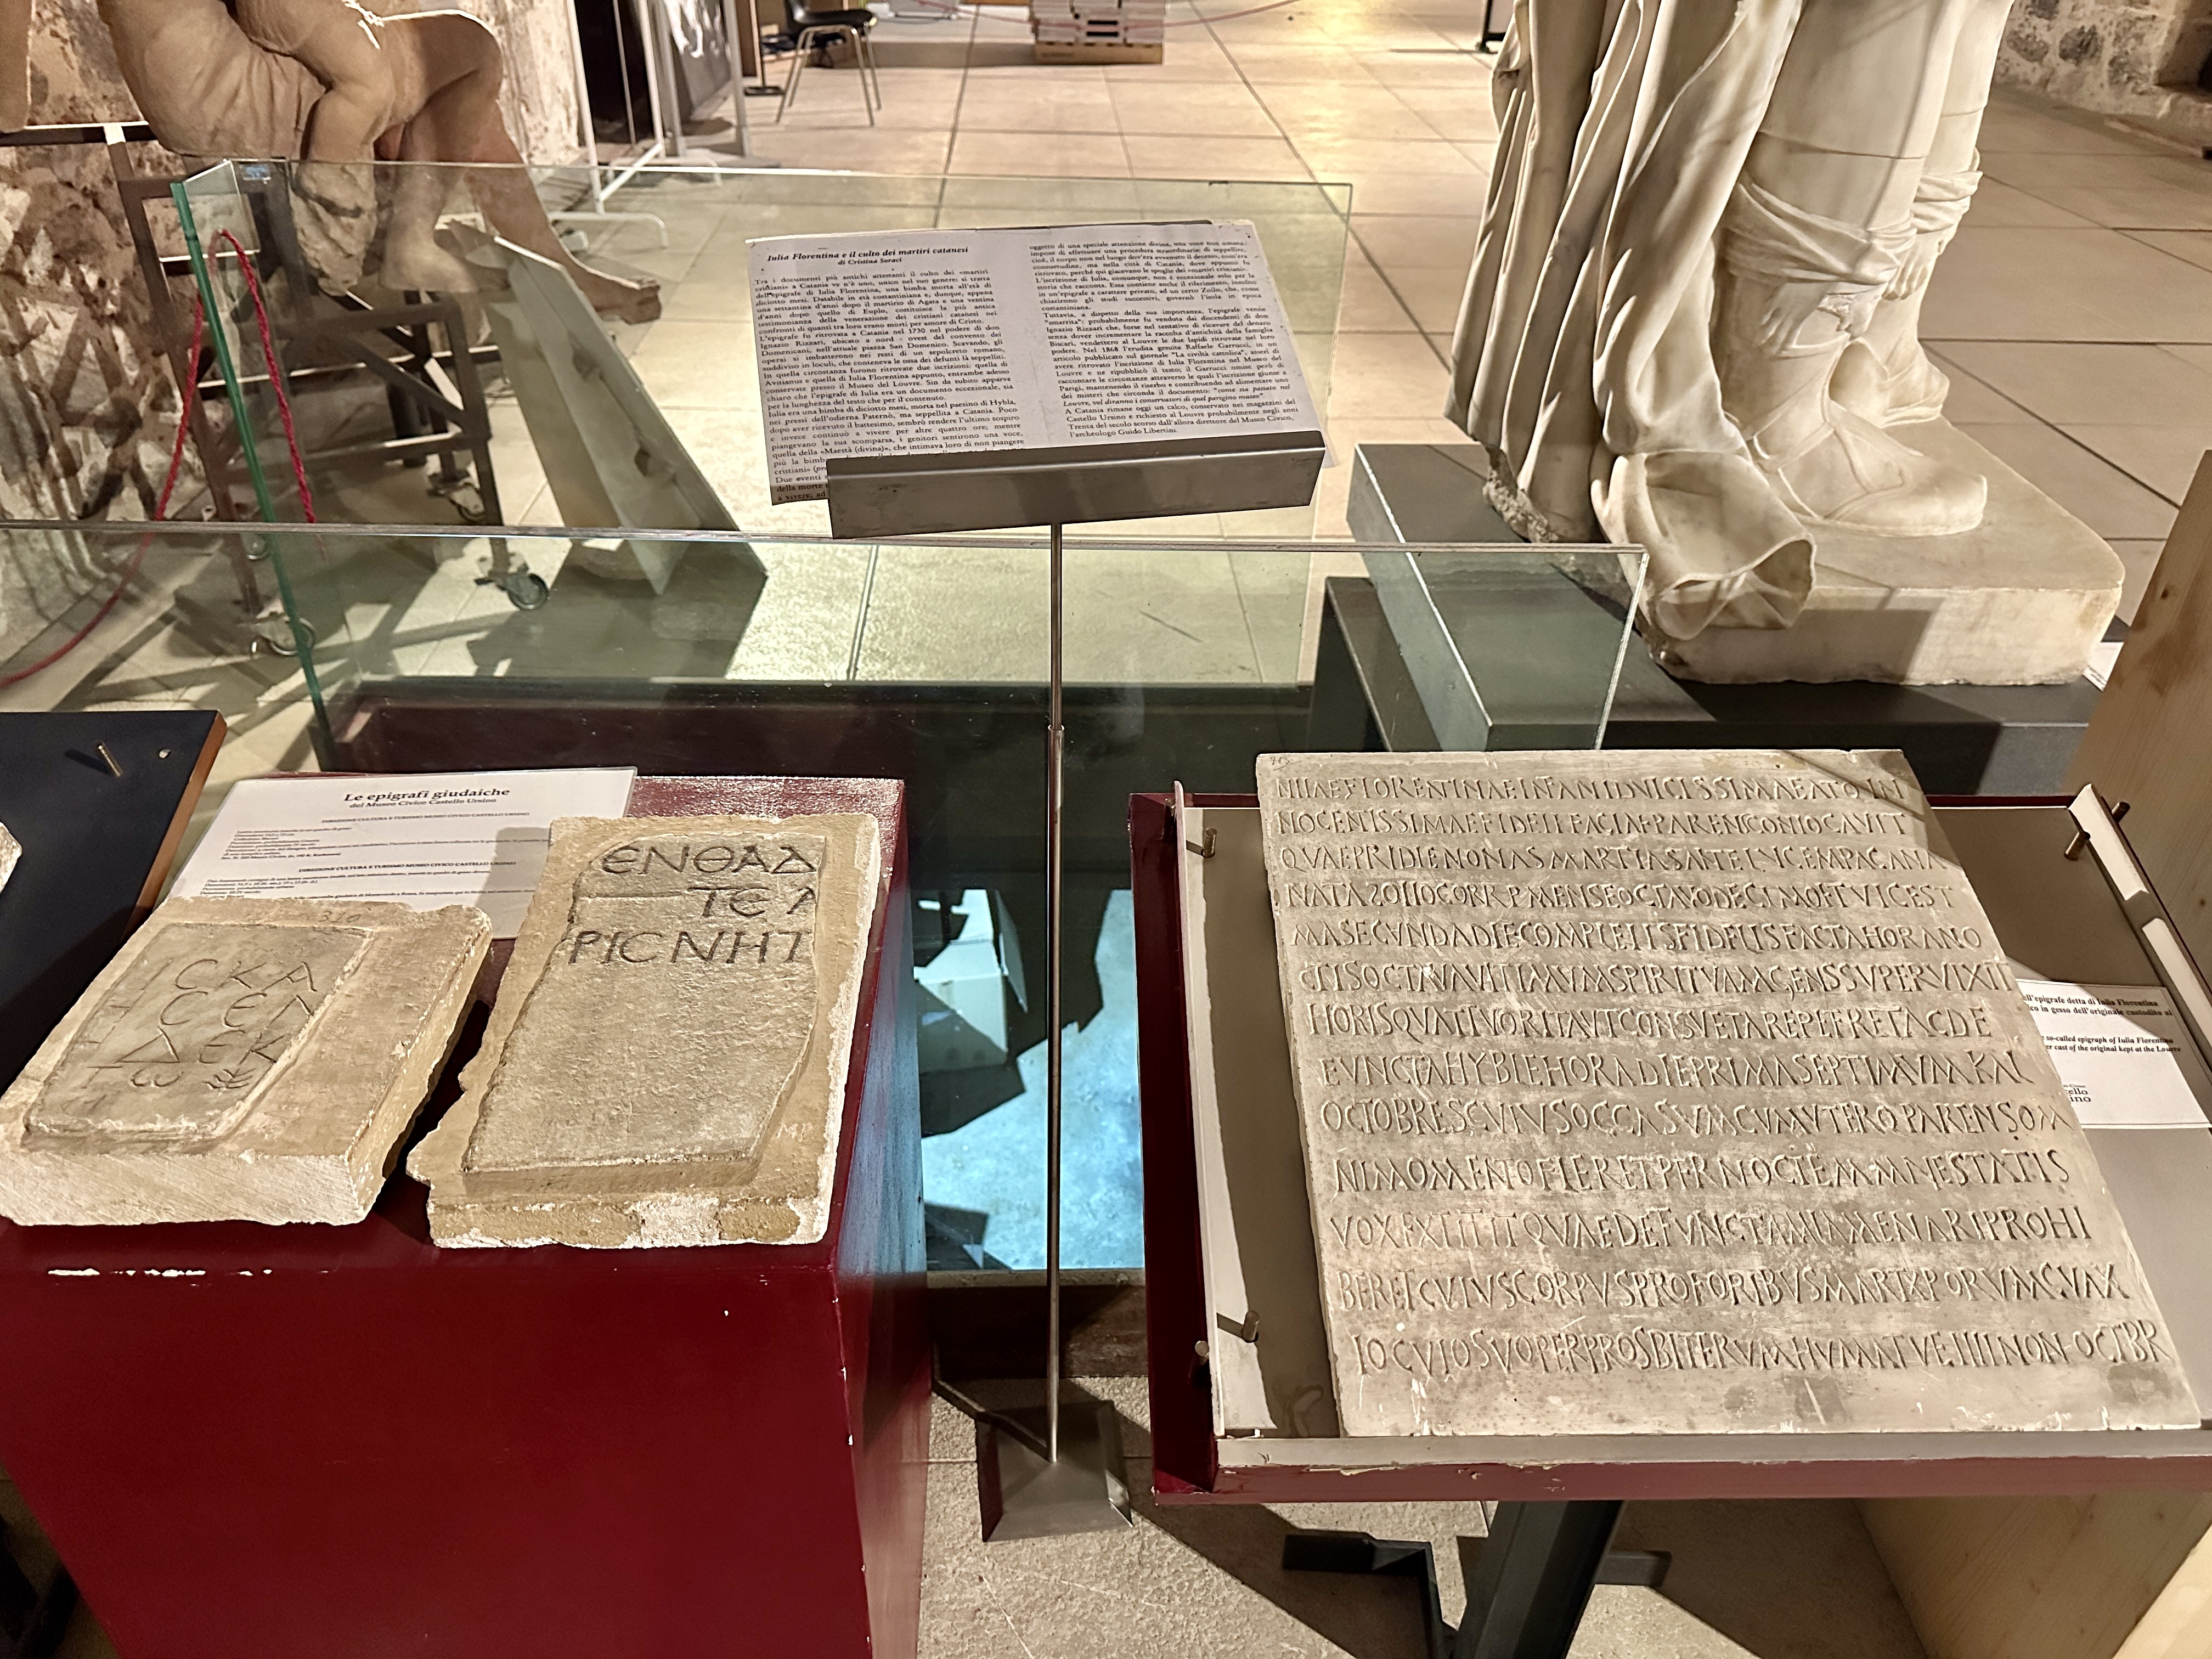 Iulia Florentina e il culto dei martiri catanesi
di Cristina Soraci
Tra i documenti più antichi attestanti il culto dei «martiri
cristiani» a Catania ve n'è uno, unico nel suo genere: si tratta
dell'epigrafe di Iulia Florentina, una bimba morta all'età di
diciotto mesi. Databile in età costantiniana e, dunque, appena
una settantina d'anni dopo il martirio di Agata e una ventina
d'anni dopo quello di Euplo, costituisce la più antica
testimonianza della venerazione dei cristiani catanesi nei
confronti di quanti tra loro erano morti per amore di Cristo.
L'epigrafe fu ritrovata a Catania nel 1730 nel podere di don
Ignazio Rizzari, ubicato a nord - ovest del convento dei
Domenicani, nell'attuale piazza San Domenico. Scavando, gli
operai si imbatterono nei resti di un sepolcreto romano,
suddiviso in loculi, che conteneva le ossa dei defunti là seppelliti.
In quella circostanza furono ritrovate due iscrizioni: quella di
Avitianus e quella di Iulia Florentina appunto, entrambe adesso
conservate presso il Museo del Louvre. Sin da subito apparve
chiaro che l'epigrafe di Iulia era un documento eccezionale, sia
per la lunghezza del testo che per il contenuto.
Iulia era una bimba di diciotto mesi, morta nel paesino di Hybla,
nei pressi dell'odierna Paternò, ma seppellita a Catania. Poco
dopo aver ricevuto il battesimo, sembrò rendere l'ultimo sospiro
e invece continuò a vivere per altre quattro ore; mentre
piangevano la sua scomparsa, i genitori sentirono una voce,
quella della «Maestà (divina)», che intimava loro di non piangere
più la bimb
cristiani» (pr
Due eventi
della morte
a vivere; ad
oggetto di una speciale attenzione divina, una voce non umana,
impose di effettuare una procedura straordinaria: di seppellire,
cioè, il corpo non nel luogo dov'era avvenuto il decesso, com'era
consuetudine, ma nella città di Catania, dove appunto fu
ritrovato, perché qui giacevano le spoglie dei «martiri cristiani».
L'iscrizione di Iulia, comunque, non è eccezionale solo per la
storia che racconta. Essa contiene anche il riferimento, insolito
in un'epigrafe a carattere privato, ad un certo Zoilo, che, come
chiarirono gli studi successivi, governò l'isola in epoca
costantiniana.
Tuttavia, a dispetto della sua importanza, l'epigrafe venne
"smarrita": probabilmente fu venduta dai discendenti di don
Ignazio Rizzari che, forse nel tentativo di ricavare del denaro
senza dover incrementare la raccolta d'antichità della famiglia
Biscari, vendettero al Louvre le due lapidi ritrovate nel loro
podere. Nel 1868 l'erudita gesuita Raffaele Garrucci, in un
articolo pubblicato sul giornale "La civiltà cattolica", asserì di
avere ritrovato l'iscrizione di Iulia Florentina nel Museo del
Louvre e ne ripubblicò il testo; il Garrucci omise però di
raccontare le circostanze attraverso le quali l'iscrizione giunse a
Parigi, mantenendo il riserbo e contribuendo ad alimentare uno
dei misteri che circonda il documento: "come sia passato nel
Louvre, vel diranno i conservatori di quel parigino museo"
A Catania rimane oggi un calco, conservato nei magazzini del
Castello Ursino e richiesto al Louvre probabilmente negli anni
Trenta del secolo scorso dall'allora direttore del Museo Civico,
l'archeologo Guido Libertini.
Le epigrafi giudaiche
del Museo Civico Castello Ursino
DIREZIONE CULTURA E TURISMO MUSEO CIVICO CASTELLO URSINO
DIREZIONE CULTURA E TURISMO MUSEO CIVICO CASTELLO URSINO
310
ϹΚΑ
ϹΕΝ
ΔΕΚ
ΕΝΘΑΔ
ΤΕ Λ
ΡΙϹΝΗΤ
IVLIAEFLORENTINAEINFANTIDVLCISSIMAEATQIN
NOCENTISSIMAEFIDELIFACTAEPARENSCONLOCAVIT
QVAEPRIDIENONASMARTIASANTELVCEMPAGANA
NATAZOILOCORRPMENSEOCTAVODECIMOETVICES
MASECVNDADIECOMPLETISFIDELISFACTAHORANO
CTISOCTAVAVLTIMVMSPIRITVMAGENSSVPERVIXIT
HORISQVATTVORITAVTCONSVETAREPETERETACDE
FVNCTAHYBLEHORADIEPRIMASEPTIMVMKAL
OCTOBRESCVIVSOCCASVMCVMVTERQPARENSOM
NIMOMENTOFLERETPERNOCTEMMAIESTATIS
VOXEXTITITQVAEDEFVNCTAMLAMENTARIPROHI
BERETCVIVSCORPVSPROFORIBVSMARTXPORVMCVAX
LOCVLOSVOPERPROSBITERVMHVMATVEIIIINON·OCTBR
ell'epigrafe detta di Iulia Florentina
co in gesso dell'originale custodito al
so-called epigraph of Iulia Florentina
er cast of the original kept at the Louvre